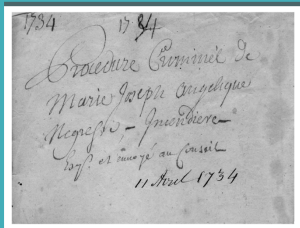 1734 1734
Procedure Criminel de
Marie Joseph Angelique
Negresse - Incendiere -
et envoyé au Conseil
11 Avril 1734